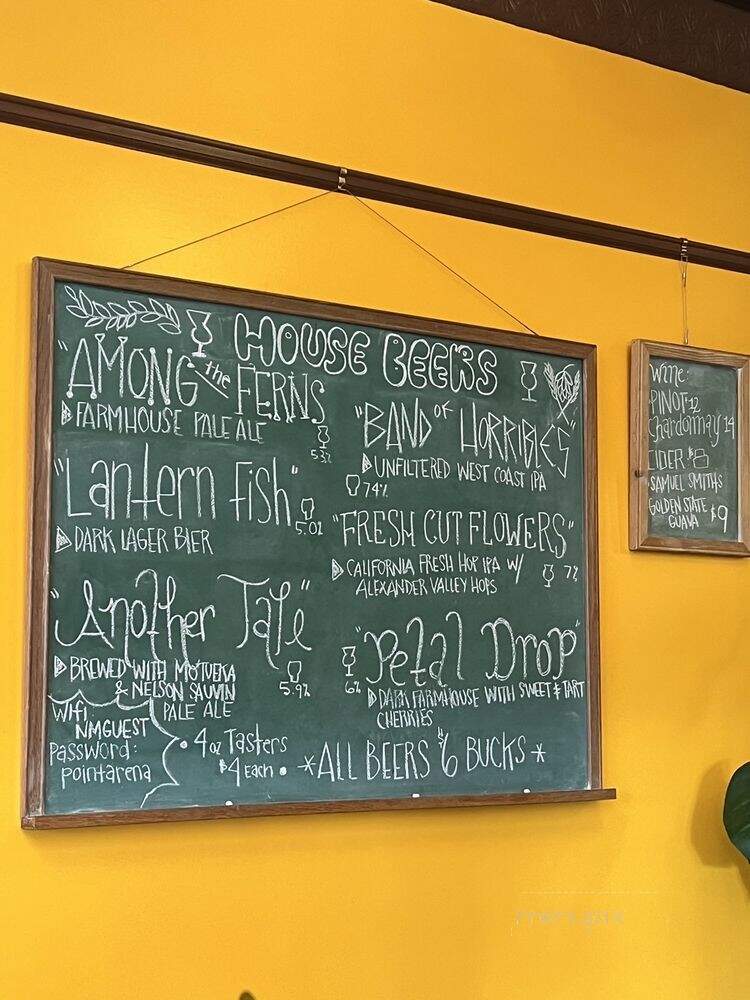 HOUSE BEERS
"AMONG the FERNS
FARMHOUSE PALE ALE
5.3%
"Lantern Fish"
5.0%
DARK LAGER BIER
"Another Tale"
BREWED WITH MOTUEKA
& NELSON SAUVIN
PALE ALE
5.9%
"BAND OF HORRIBLES"
UNFILTERED WEST COAST IPA
7.4%
"FRESH CUT FLOWERS"
CALIFORNIA FRESH HOP IPA W/
ALEXANDER VALLEY HOPS
7%
"Petal Drop"
6%
DARK FARMHOUSE WITH SWEET & TART
CHERRIES
Wifi
NMGUEST
Password:
pointarena
• 4 oz Tasters
$4 Each •
*ALL BEERS $6 BUCKS*
Wine:
PINOT 12
Chardonnay 14
CIDER: $8
SAMUEL SMITHS
GOLDEN STATE
GUAVA $9